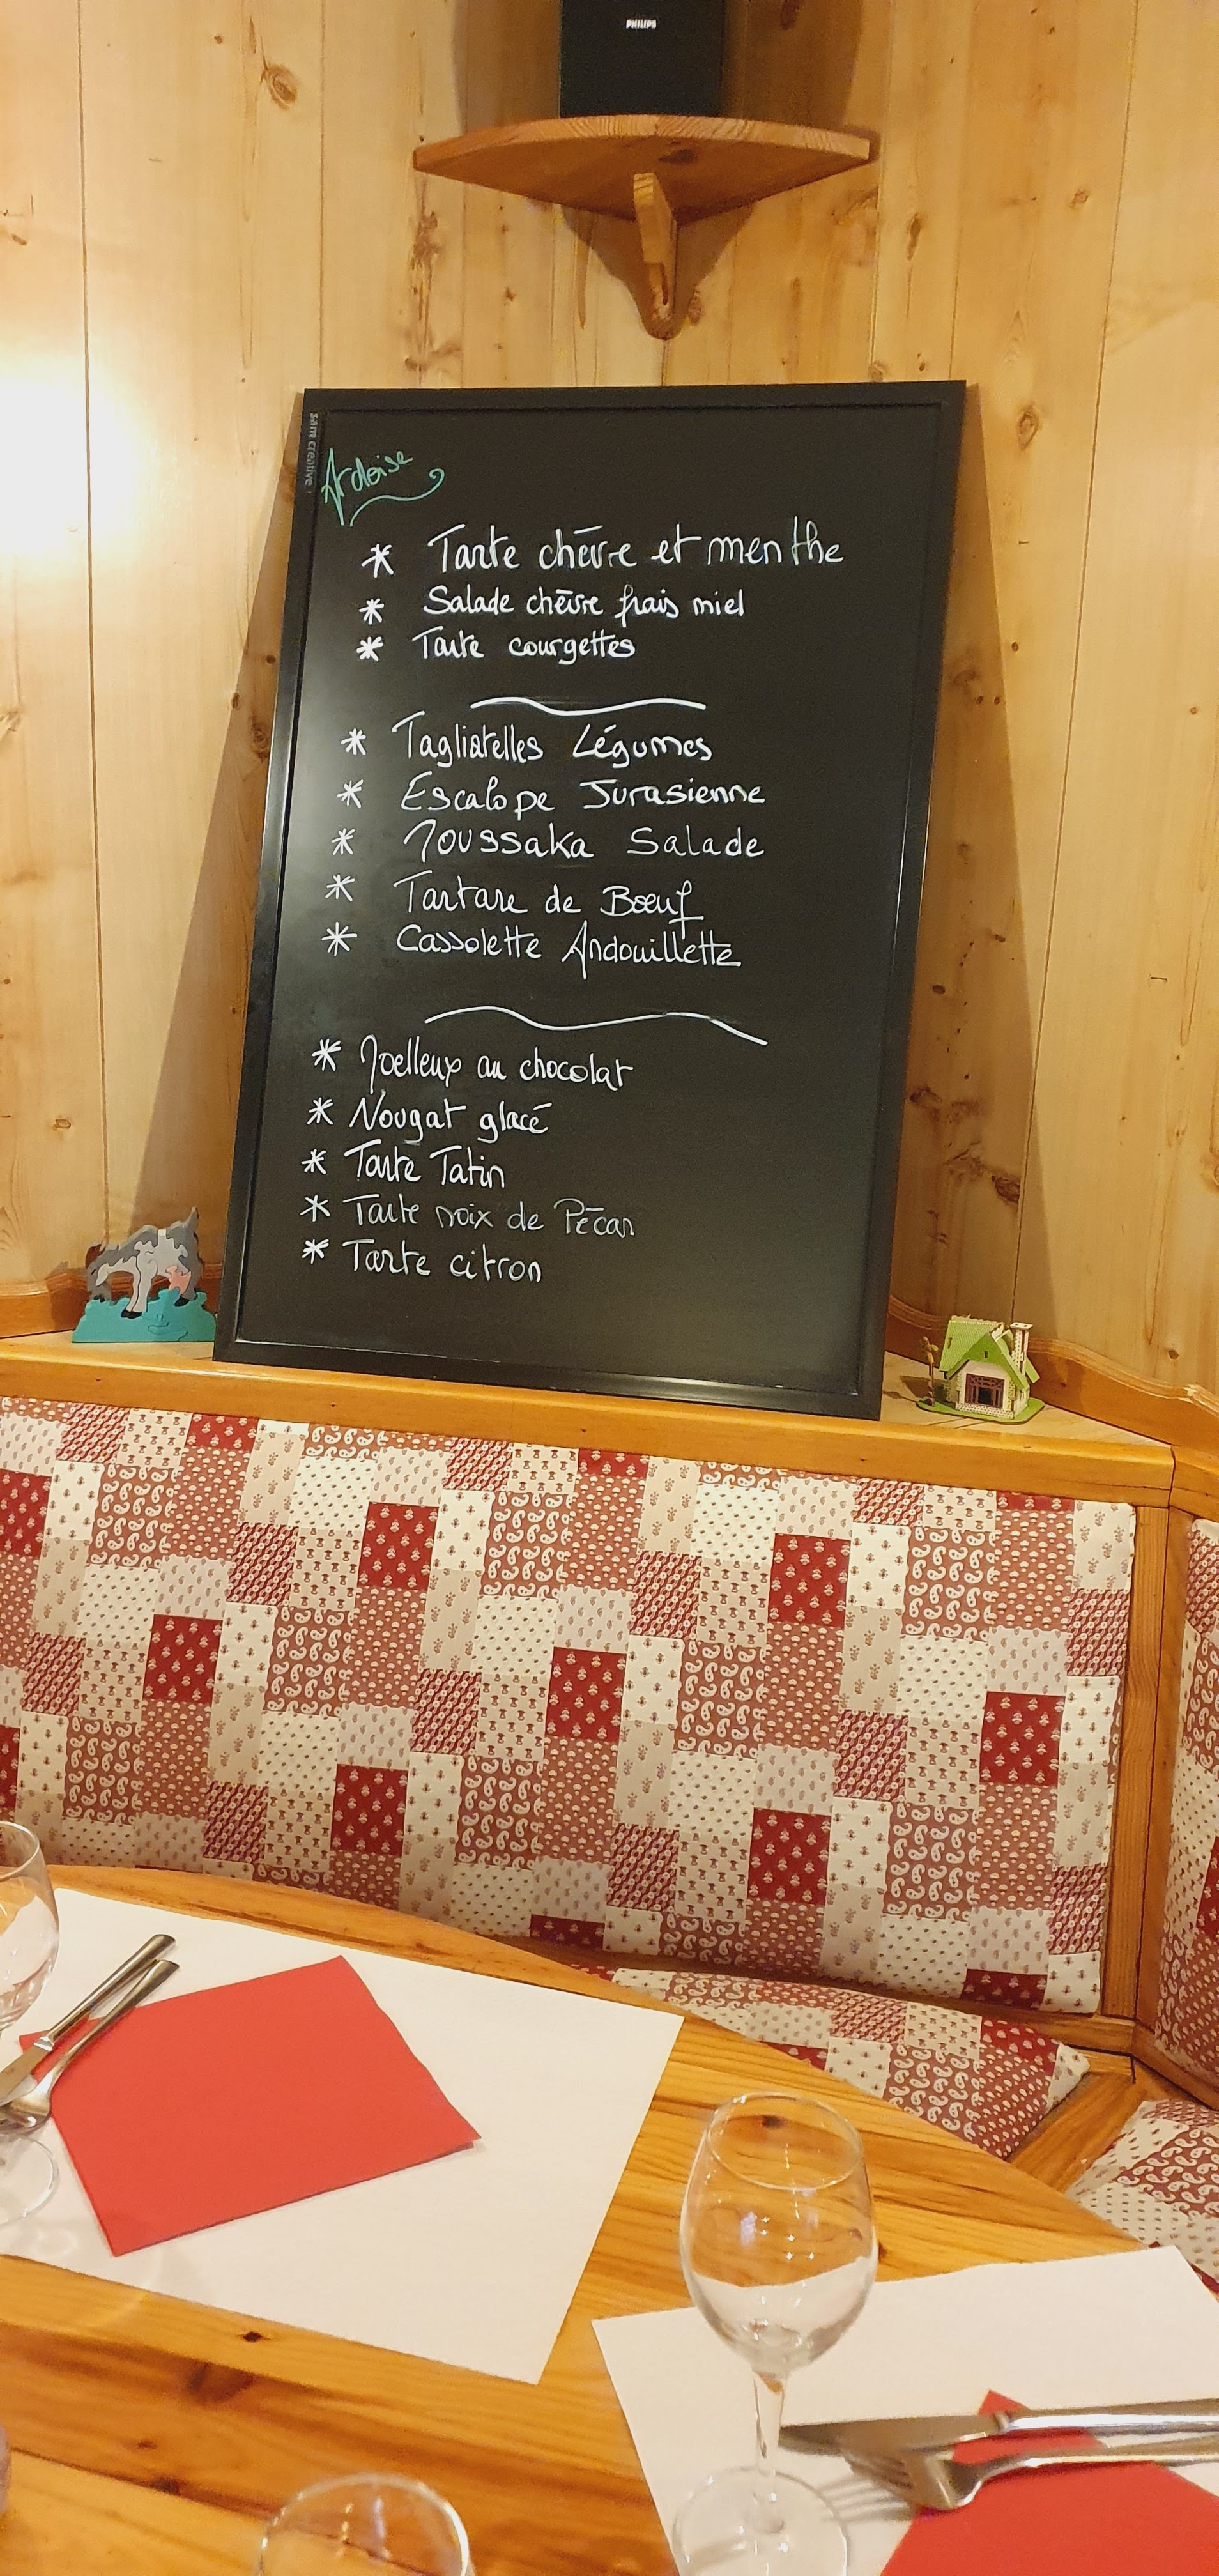 PHILIPS
sam creative
Ardoise
* Tarte chèvre et menthe
* Salade chèvre frais miel
* Tarte courgettes
* Tagliatelles Légumes
* Escalope Jurasienne
* Moussaka Salade
* Tartare de Bœuf
* Cassolette Andouillette
* Moelleux au chocolat
* Nougat glacé
* Tarte Tatin
* Tarte noix de Pécan
* Tarte citron